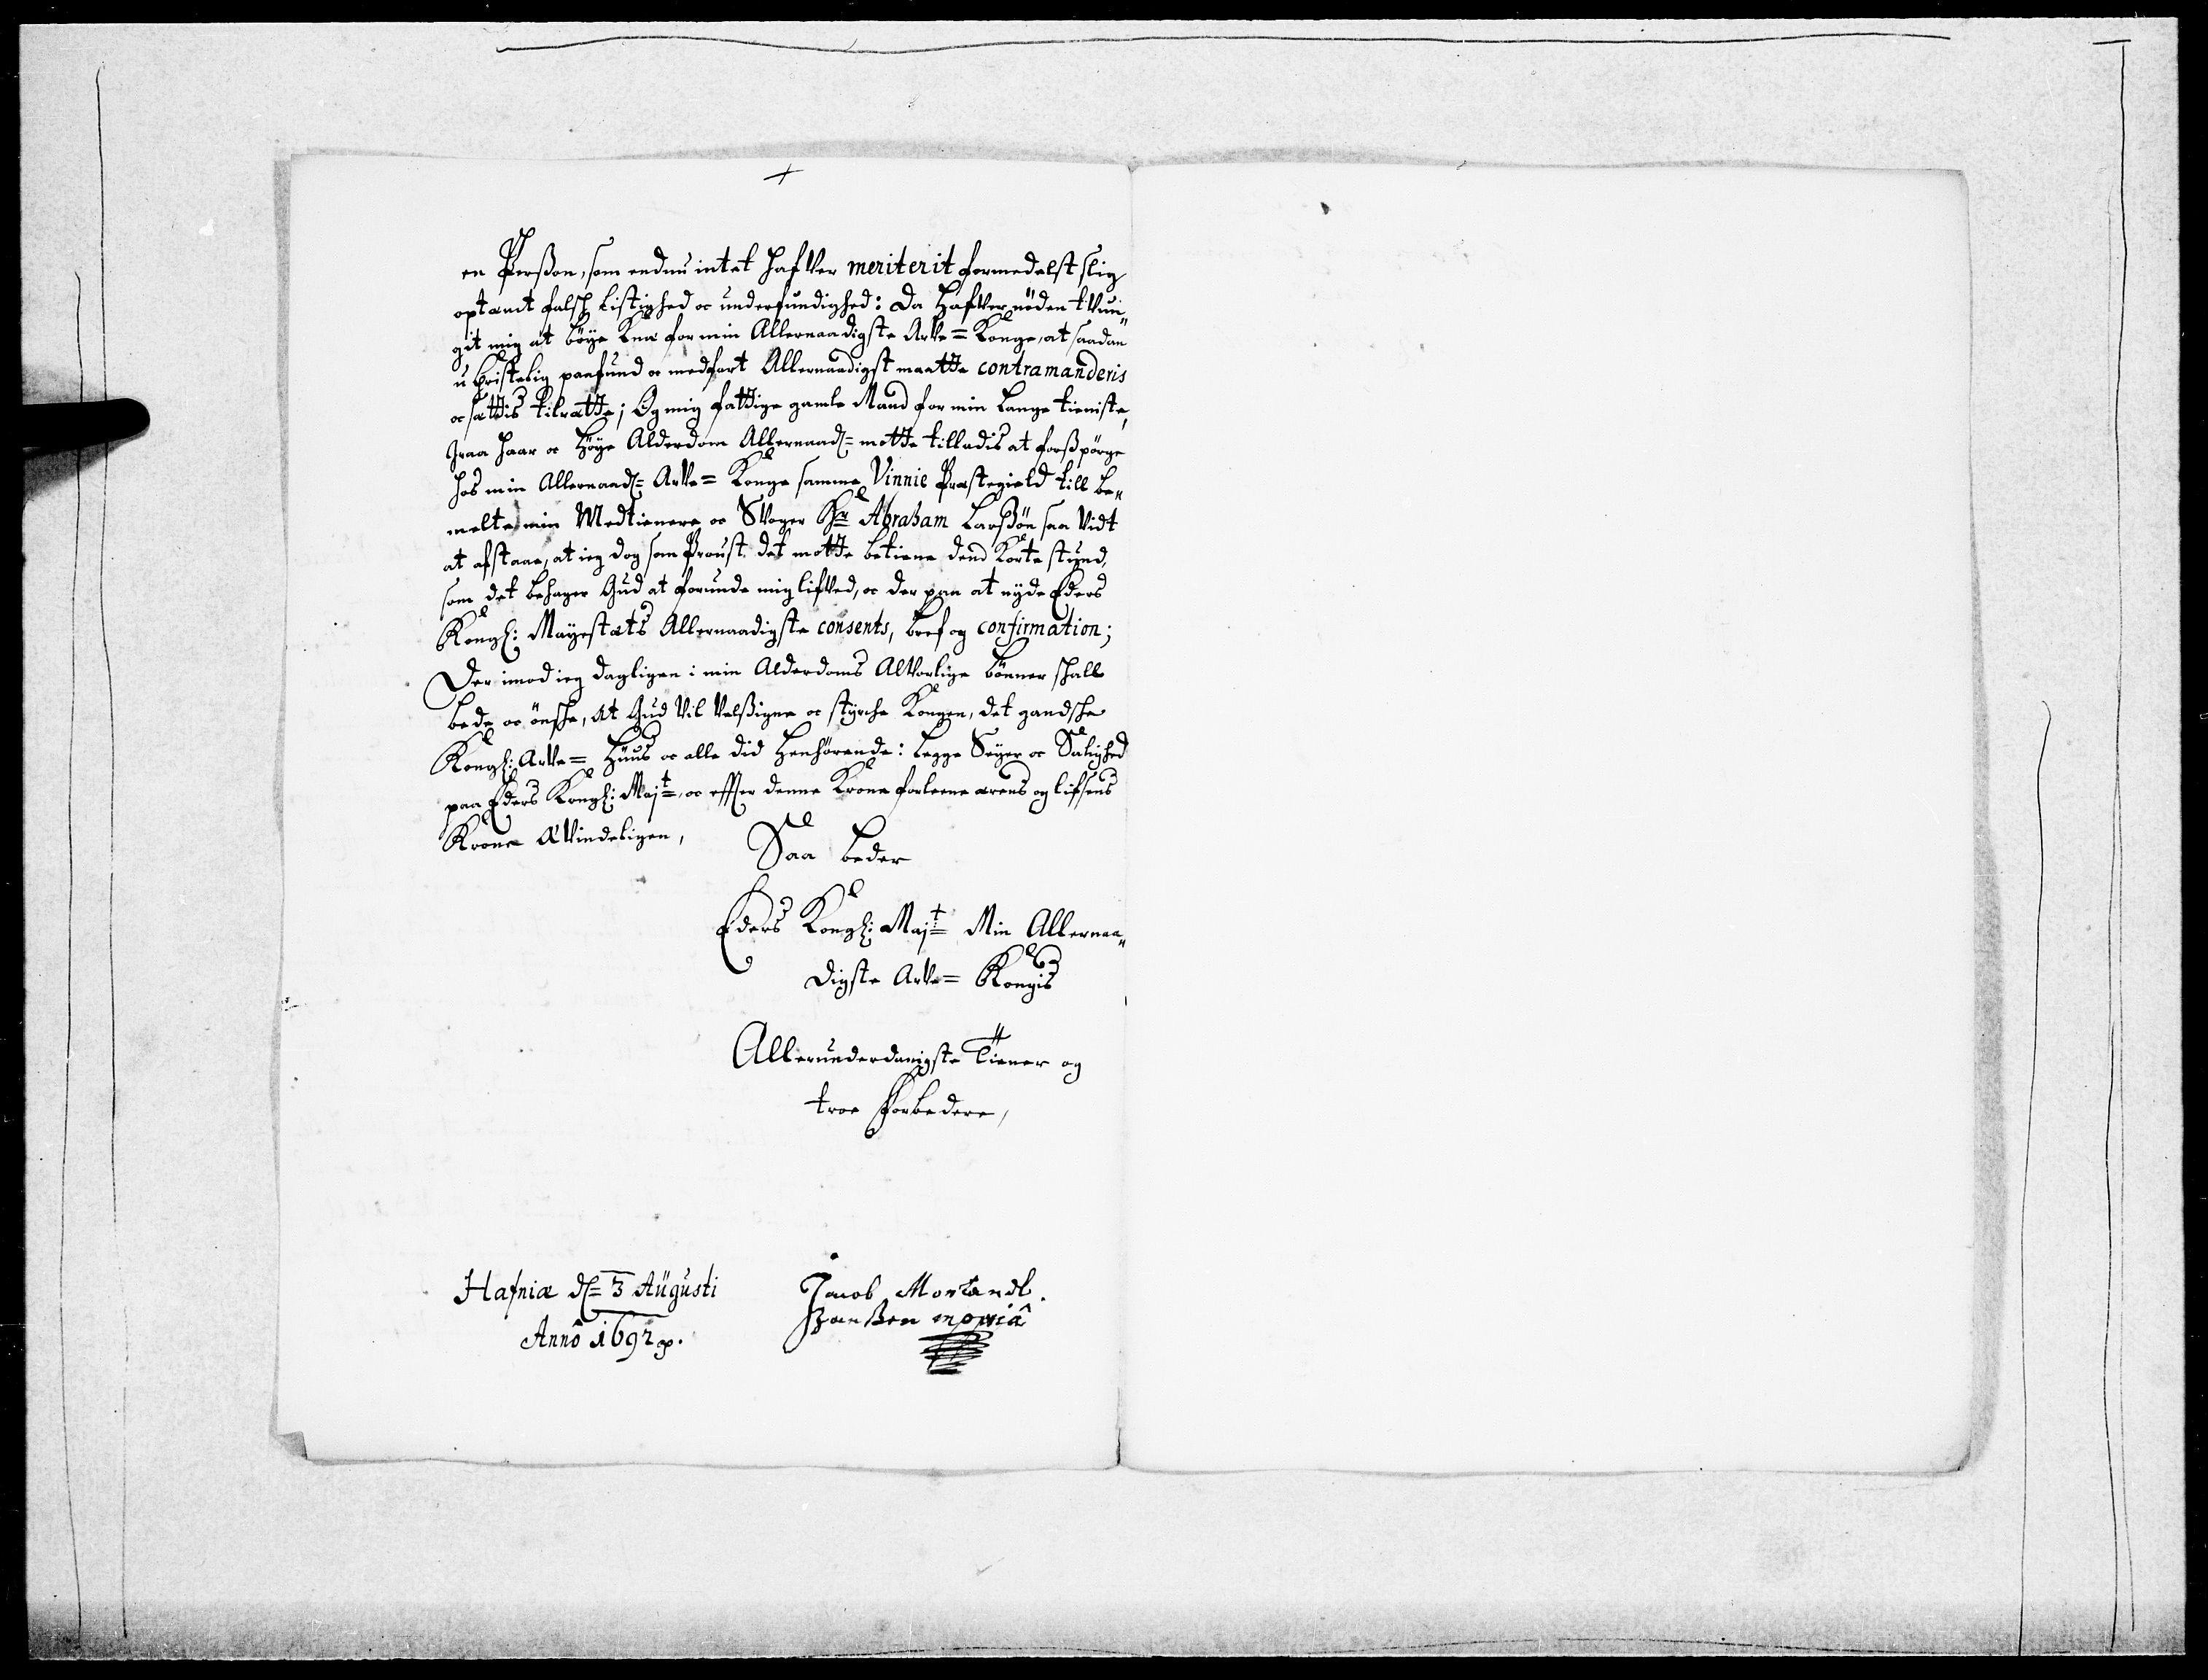 en Perßon, som endnu intet hafver meriterit formedelst slig
optænt falsch listighed oc underfundighed: Da hafver nöden tvun„
git mig at böye Knæ for min Allernaadigste Arve= Konge, at saadan
u Christelig paafund oc medfart Allernaadigst maatte contramanderis
oc sættis tilrætte; Og mig fattige gamle Mand for min lange tieniste,
graa haar oc höye Alderdom Allernaad= motte tilladis at forspörge
hos min Allernaad= Arve= Konge samme Vinnie Præstegield till be„
melte min Medtienere oc Svoger Hr Abraham Larßön saa vidt
at afstaae, at ieg dog som Proust det motte betiene dend korte stund,
som det behager Gud at forunde mig lifved, oc der paa at nyde Eders
Kongl: Mayestæts Allernaadigste consents, bref og confirmation;
Der imod ieg dagligen i min Alderdoms Alvorlige bönner schall
bede oc önsche, at Gud vil velßigne oc styrche Kongen, det gandsche
Kongl: Arve= Huus oc alle did henhörende: legge Seyer oc Salighed
paa Eders Kongl: Majt, oc effter denne Krone forleene ærens og lifsens
Krone Ævindeligen,
Saa beder
Eders Kongl: Majt Min Allernaa„
digste Arve= Kongis
Allerunderdanigste Tiener og
troe Forbedere,
Hafniæ d= 3 Augusti
Anno 1692
Jacob Morlandt.
Hanßen mppriâ